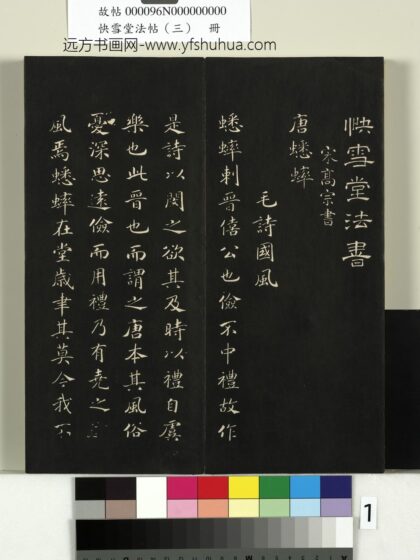 故帖 000096N000000000
快雪堂法帖（三） 冊
远方书画网-www.yfshuhua.com
快雪堂法書
宋髙宗書
唐蟋蟀
毛詩國風
蟋蟀刺晉僖公也儉不中禮故作
是詩以閔之欲其及時以禮自虞
樂也此晉也而謂之唐本其風俗
憂深思遠儉而用禮乃有堯之
風焉蟋蟀在堂歲聿其莫今我不
1